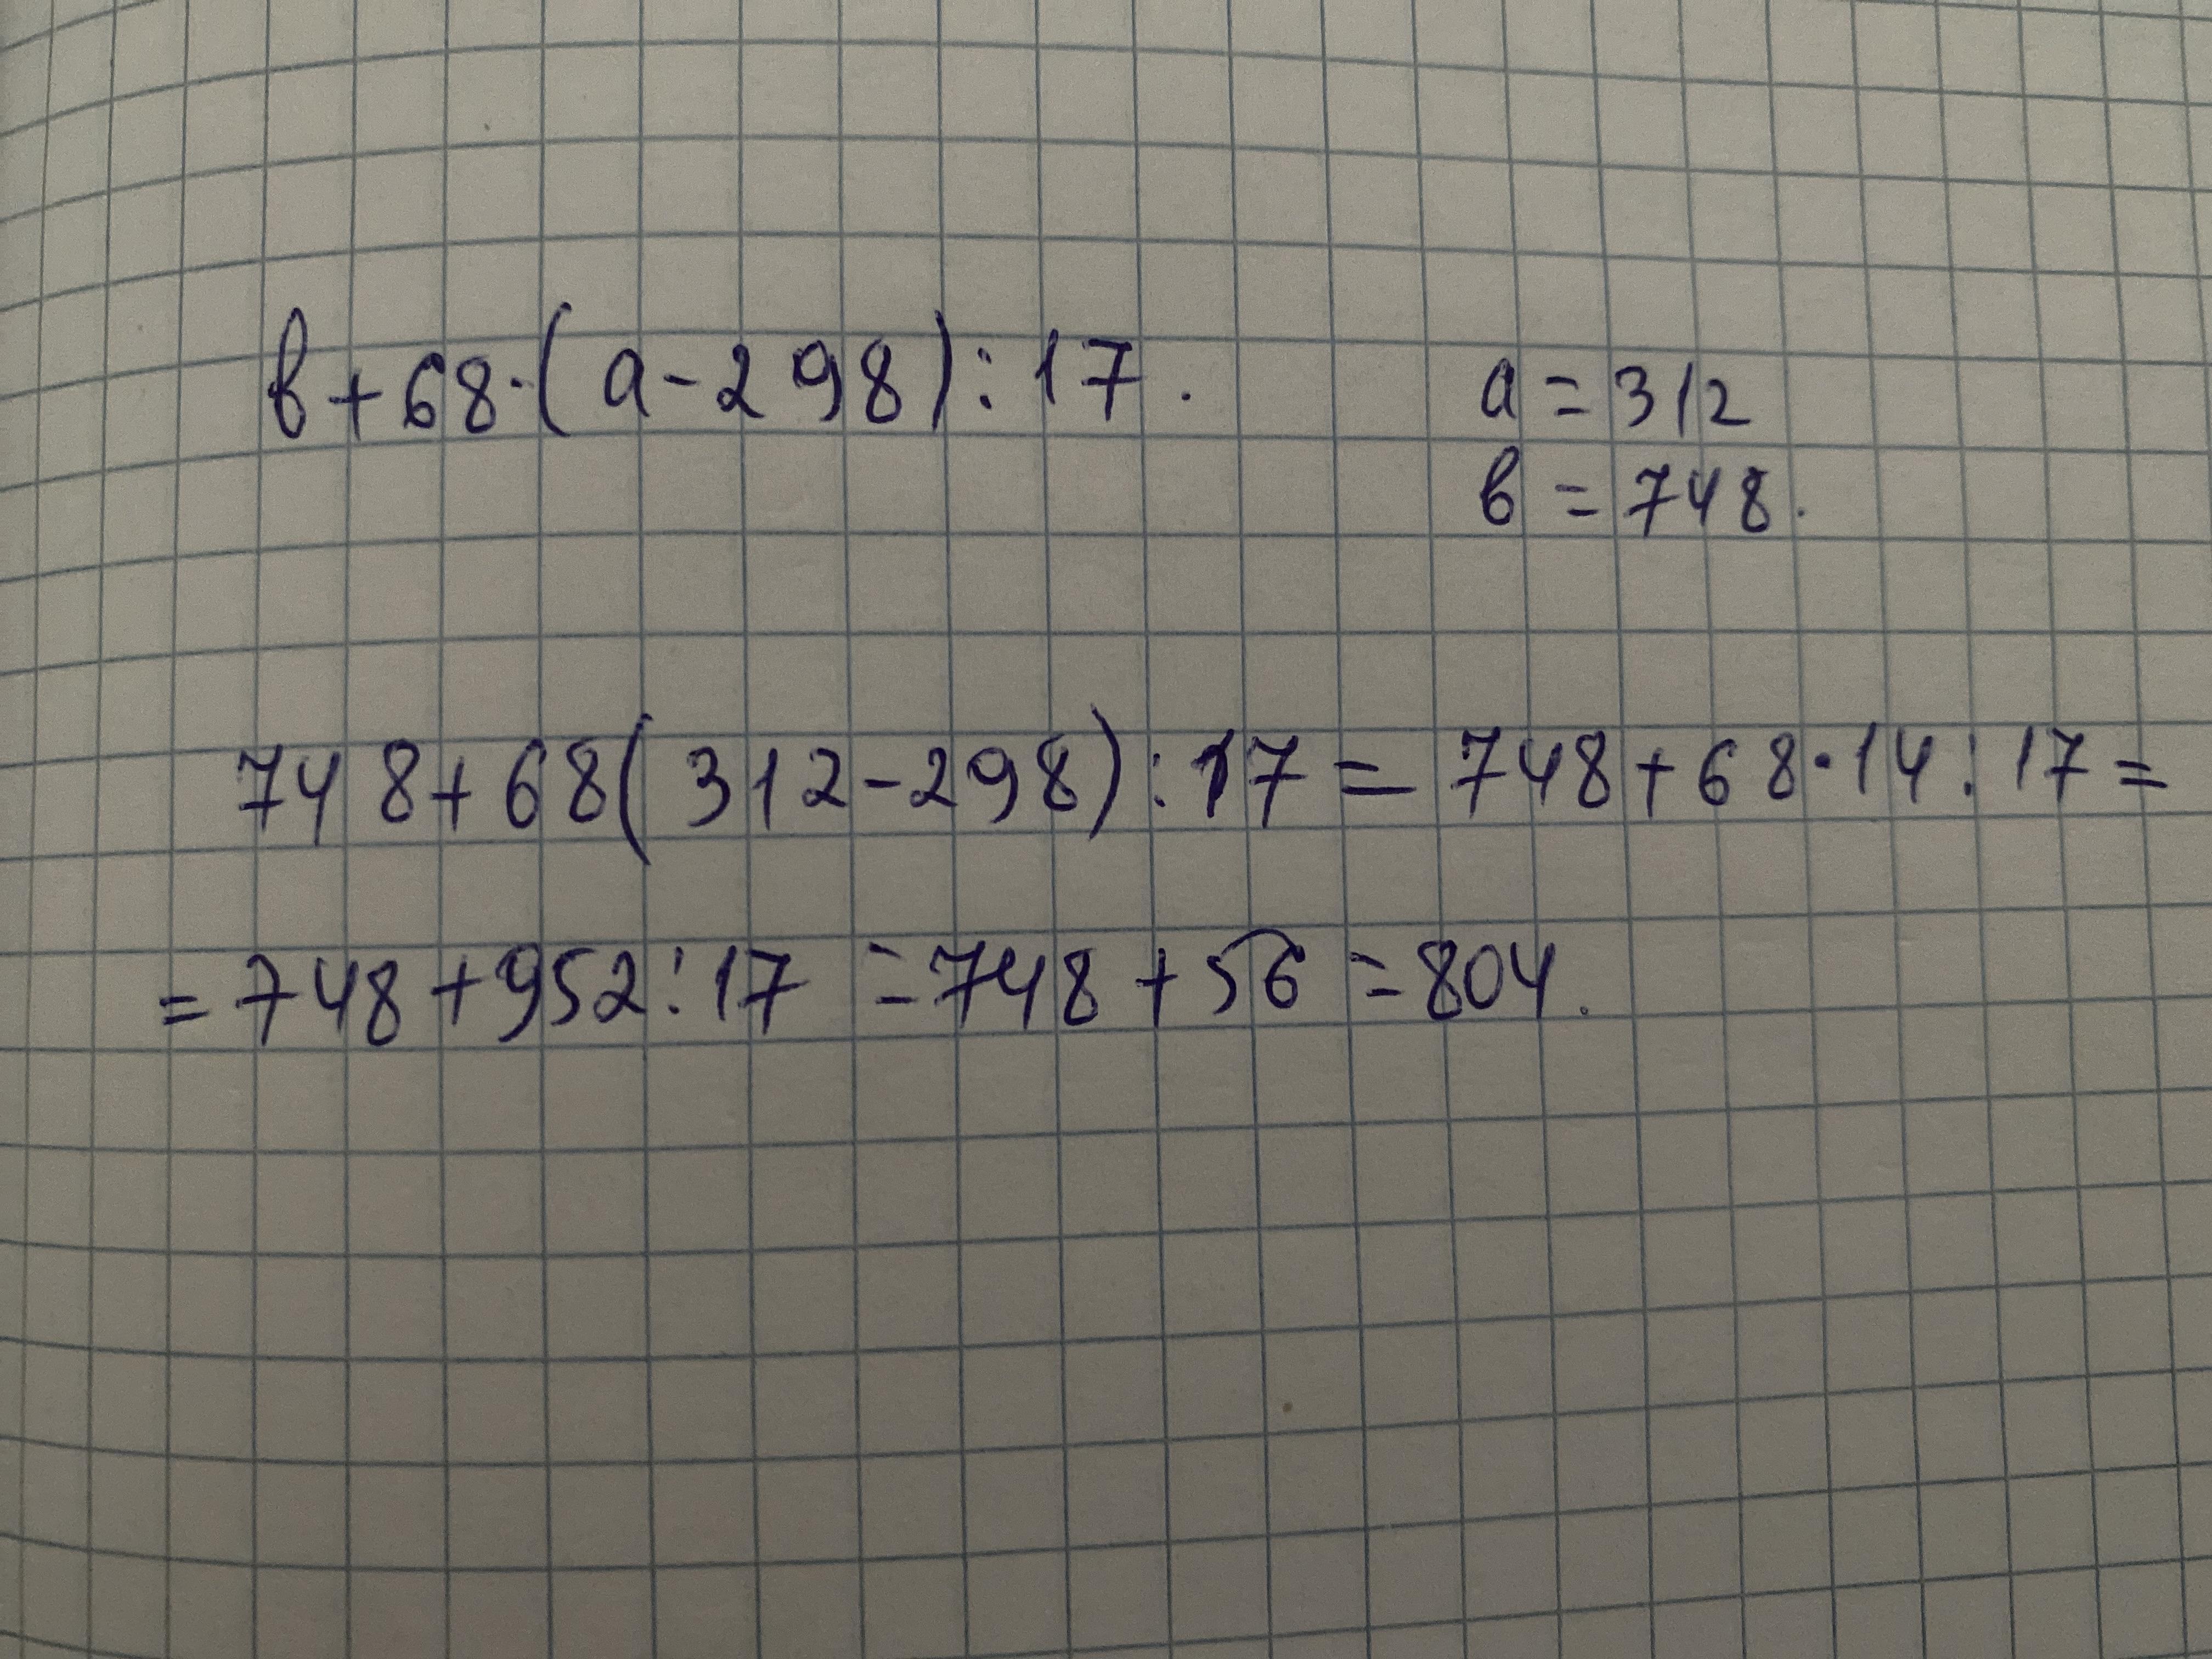 в+68·(а-298):17.
а=312
в=748.
748+68(312-298):17=748+68·14:17=
=748+952:17=748+56=804.